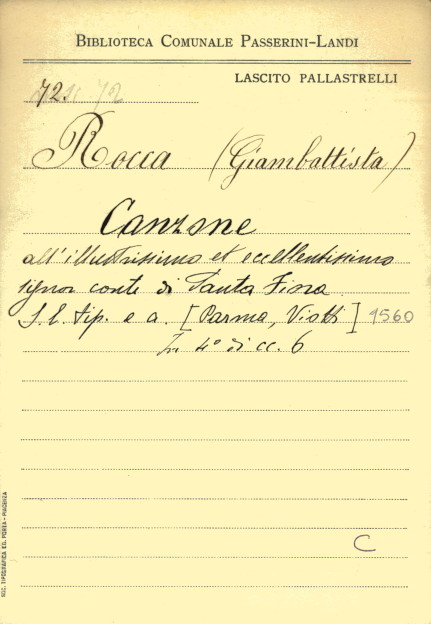 BIBLIOTECA COMUNALE PASSERINI-LANDI
LASCITO PALLASTRELLI
72. 72
Rocca (Giambattista)
Canzone
all'illustrissimo et eccellentissimo
signor conte di Santa Fiora
S. l. tip. e a. [Parma, Viotti] 1560
In 4° di cc. 6
C
SOC. TIPOGRAFICA ED. PORTA - PIACENZA